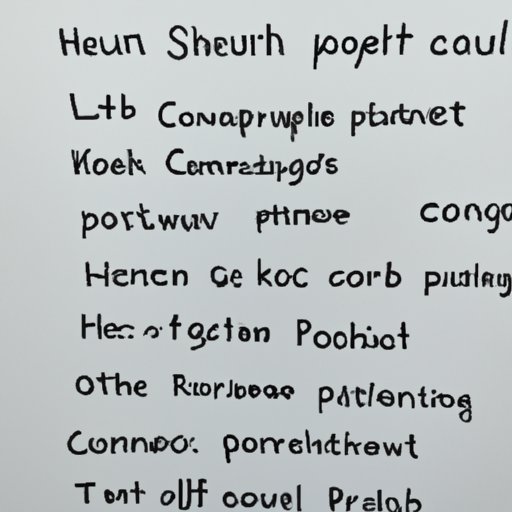 Heun Sheurh popelt caul
Ltb Conaprwplie ptartnet
Koek Cemratpgds
portwuv phnoe congo
Hencn Ge koc corb puulay
Hes fgcton Poohiot
othe patlentiog
Connpoc. porrehtkrewt
Tont olff oouel Prealab